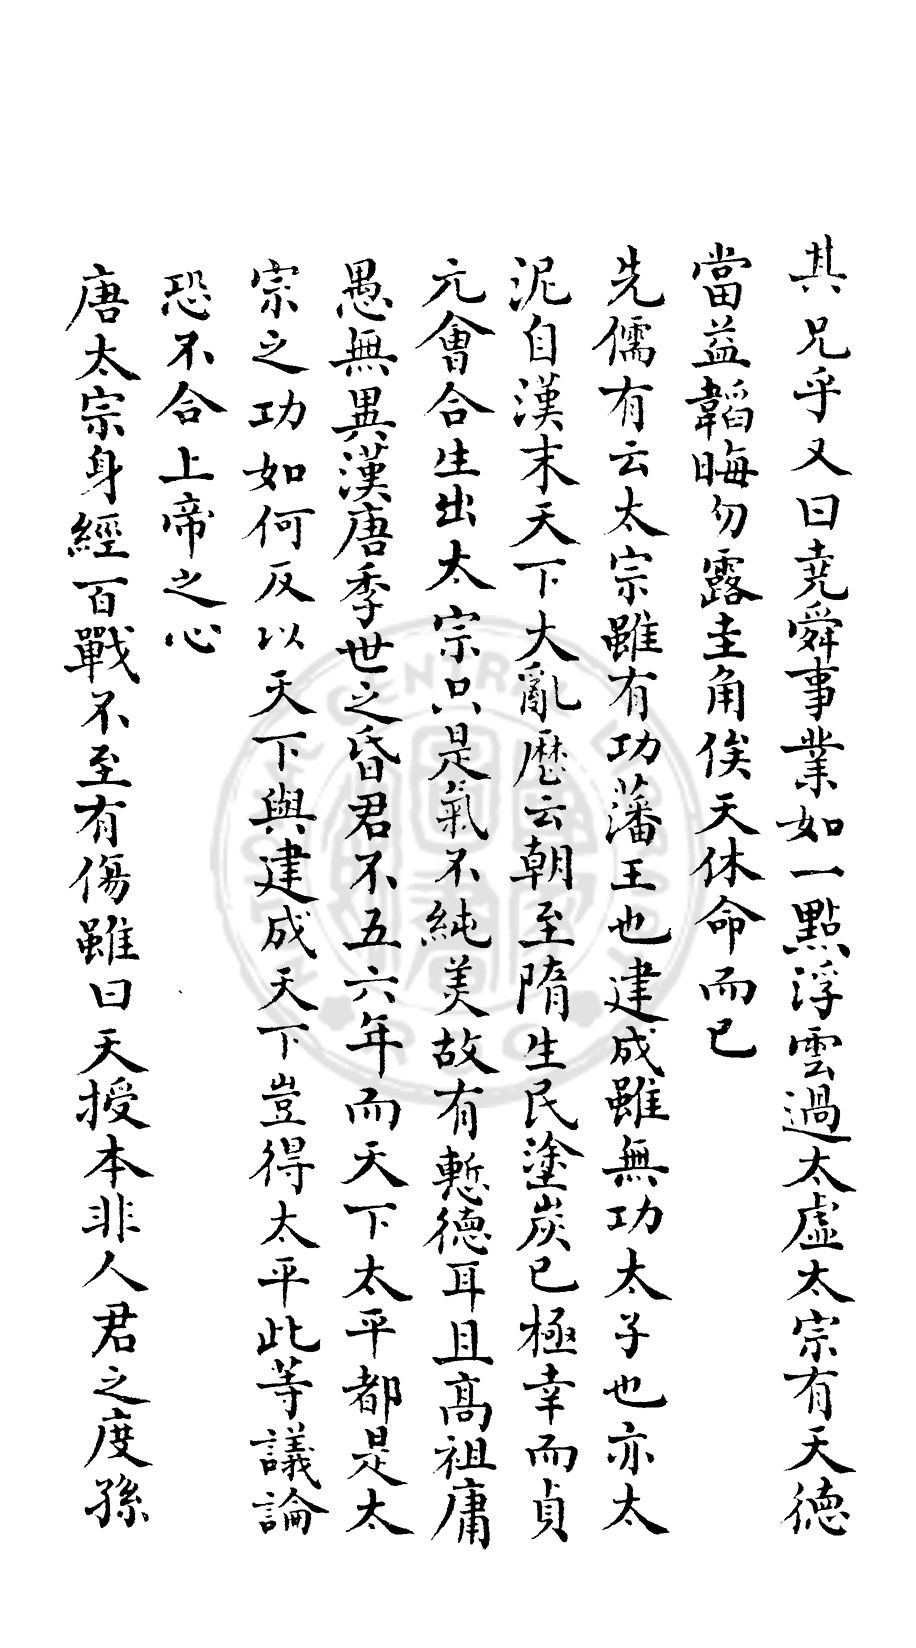 其兄乎又曰堯舜事業如一點浮雲過太虛太宗有天德
當益韜晦勿露圭角俟天休命而已
先儒有云太宗雖有功藩王也建成雖無功太子也亦太
泥自漢末天下大亂歷云朝至隋生民塗炭已極幸而貞
元會合生出太宗只是氣不純美故有慙德耳且高祖庸
愚無異漢唐季世之昏君不五六年而天下太平都是太
宗之功如何反以天下與建成天下豈得太平此等議論
恐不合上帝之心
唐太宗身經百戰不至有傷雖曰天授本非人君之度孫